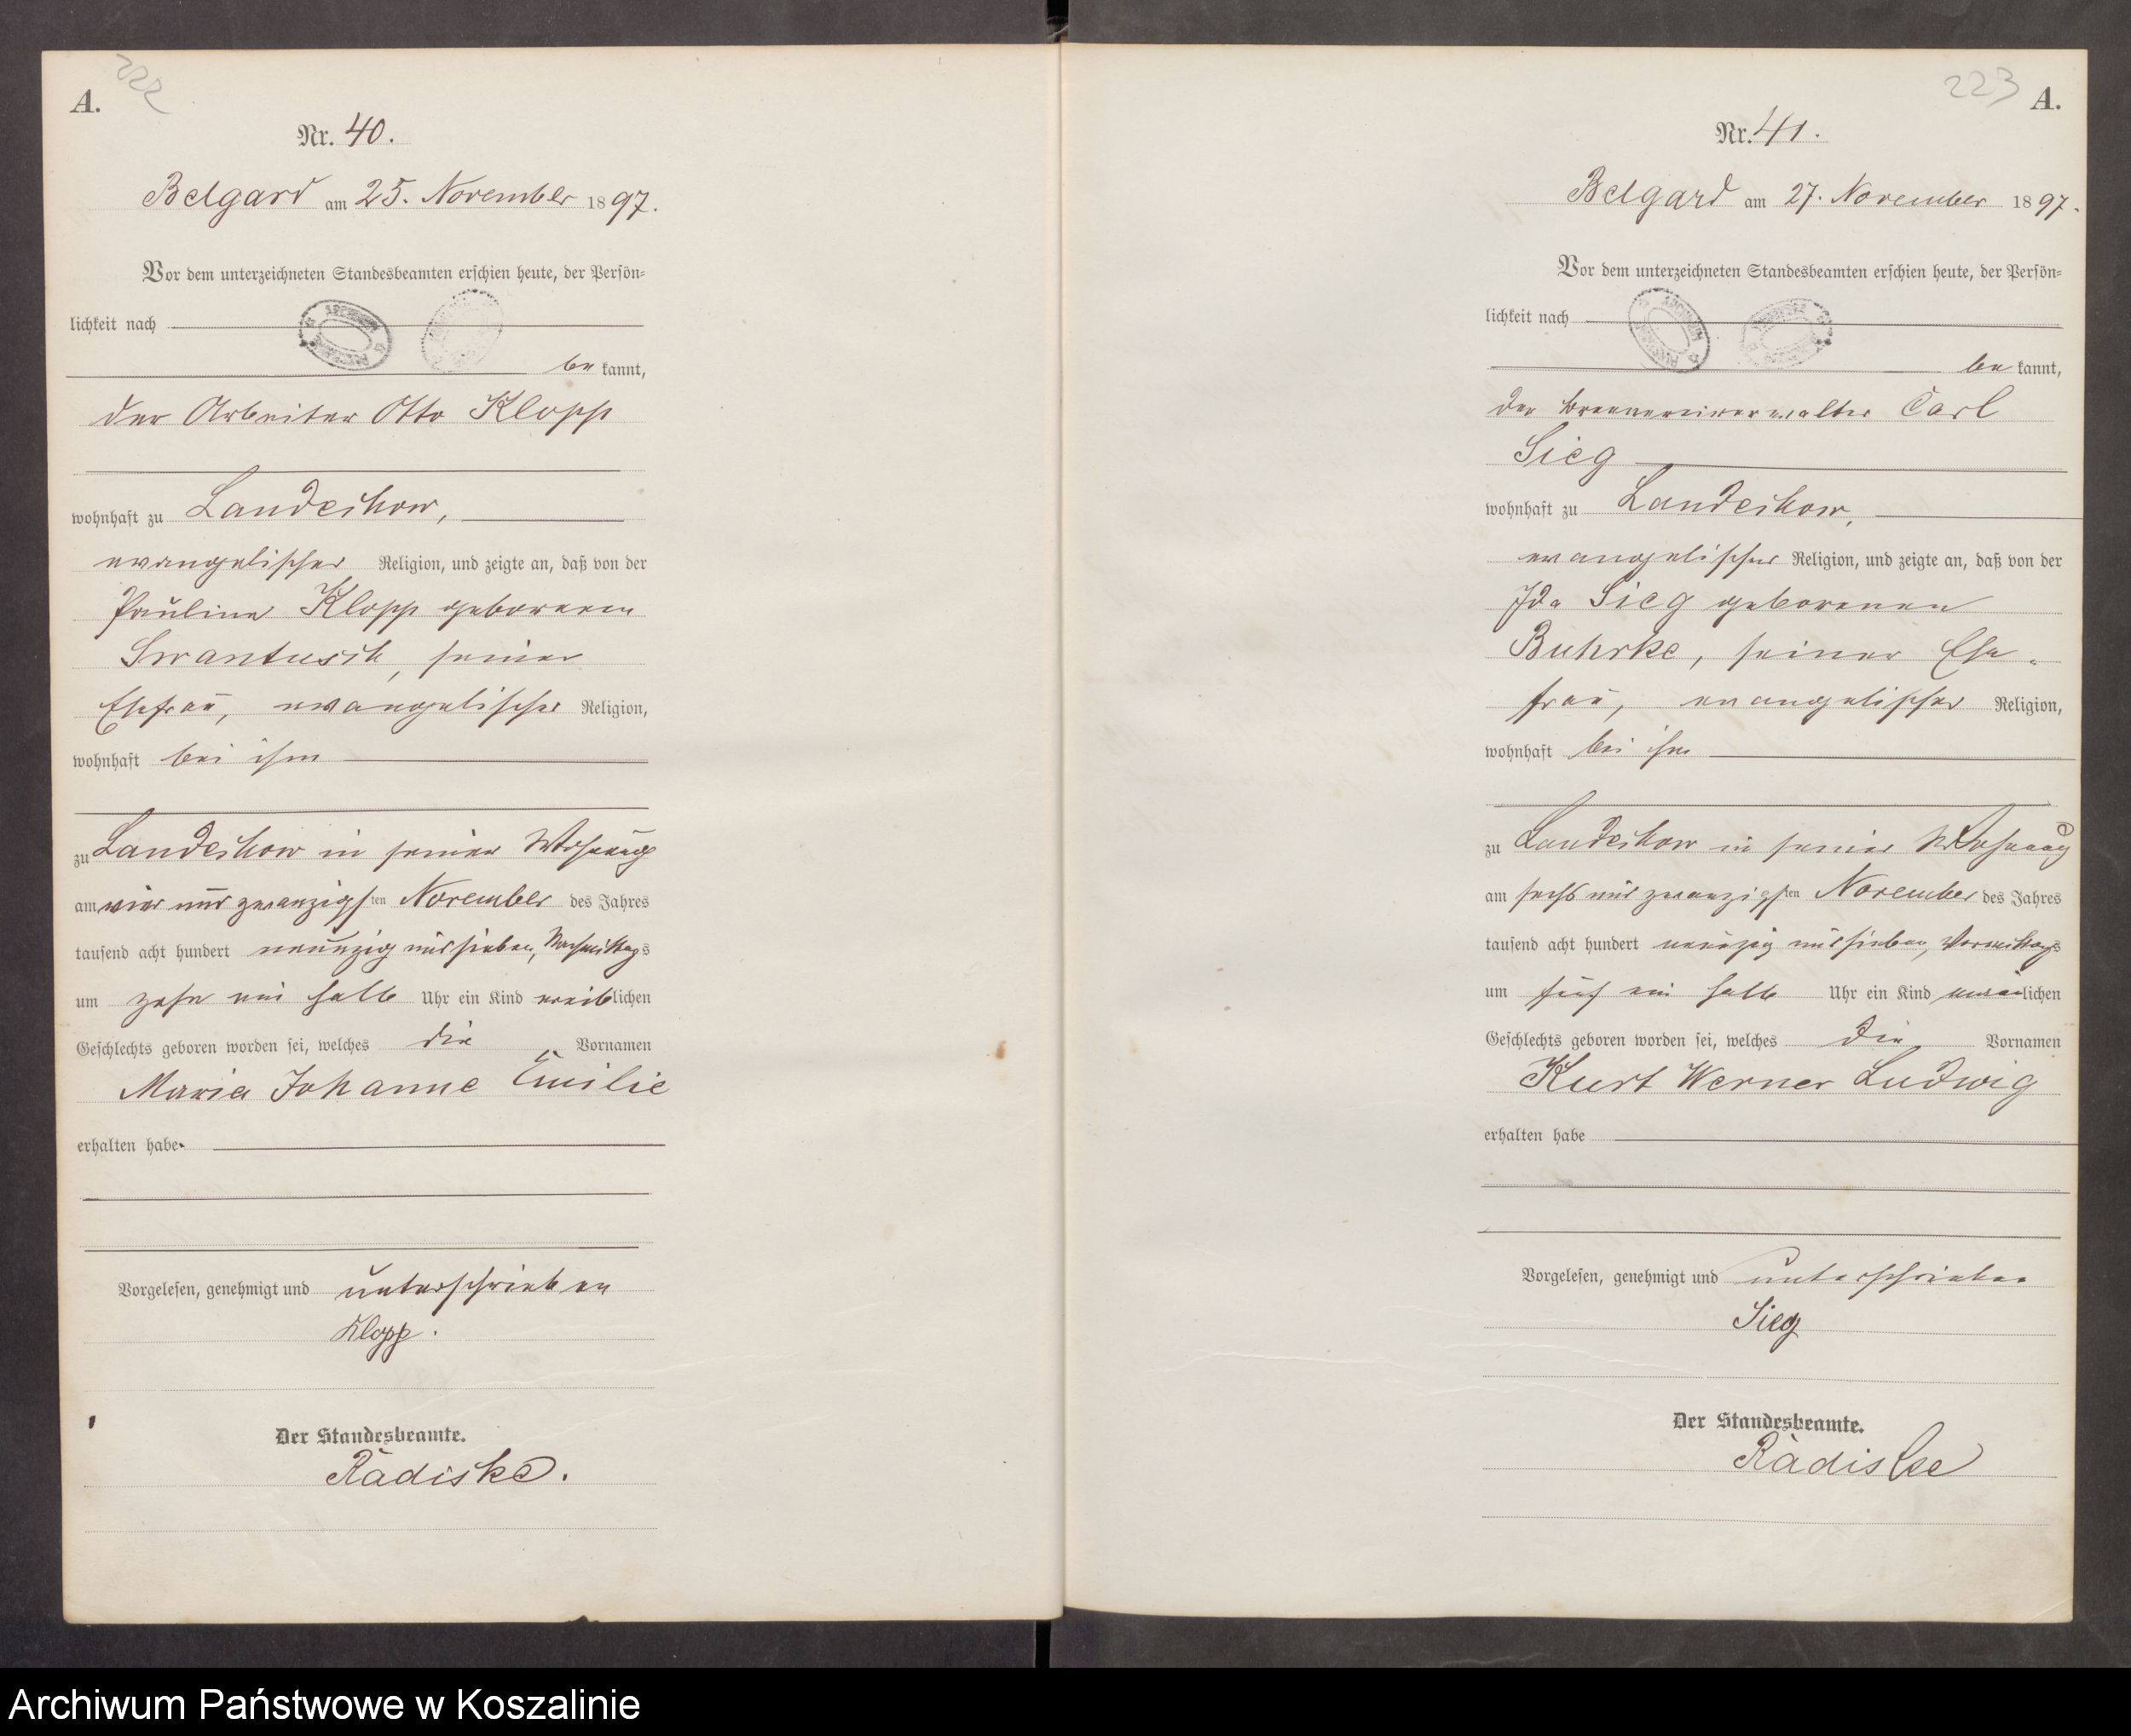 222
A.
Nr. 40.
Belgard am 25. November 1897.
Vor dem unterzeichneten Standesbeamten erschien heute, der Persön-
lichkeit nach
be kannt,
der Arbeiter Otto Klopp
wohnhaft zu Landechow,
evangelischer Religion, und zeigte an, daß von der
Pauline Klopp geborenen
Swantusch, seiner
Ehefrau, evangelischer Religion,
wohnhaft bei ihm
zu Landechow in seiner Wohnung
am vier und zwanzigsten November des Jahres
tausend acht hundert neunzig und sieben, Nachmittags
um zehn ein halb Uhr ein Kind weiblichen
Geschlechts geboren worden sei, welches die Vornamen
Maria Johanne Emilie
erhalten habe.
Vorgelesen, genehmigt und unterschrieben
Klopp.
Der Standesbeamte.
Radiske.
223
A.
Nr. 41.
Belgard am 27. November 1897.
Vor dem unterzeichneten Standesbeamten erschien heute, der Persön-
lichkeit nach
be kannt,
der Brennereiverwalter Carl
Sieg
wohnhaft zu Landechow,
evangelischer Religion, und zeigte an, daß von der
Ida Sieg geborenen
Buhrke, seiner Ehe-
frau, evangelischer Religion,
wohnhaft bei ihm
zu Landechow in seiner Wohnung
am sechs und zwanzigsten November des Jahres
tausend acht hundert neunzig und sieben, Vormittags
um fünf ein halb Uhr ein Kind männlichen
Geschlechts geboren worden sei, welches die Vornamen
Kurt Werner Ludwig
erhalten habe
Vorgelesen, genehmigt und unterschrieben
Sieg
Der Standesbeamte.
Radiske
Archiwum Państwowe w Koszalinie